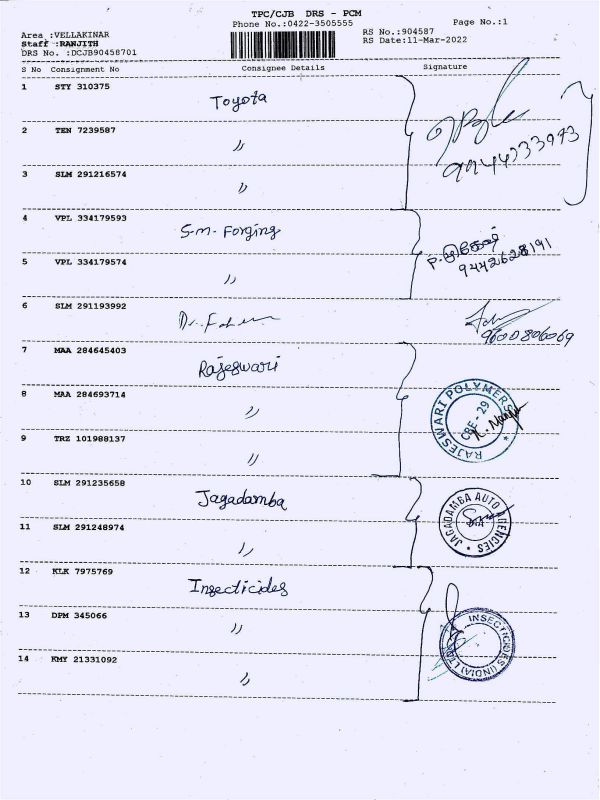 TPC/CJB DRS - PCM
Phone No.:0422-3505555 Page No.:1
Area :VELLAKINAR RS No.:904587
Staff :RANJITH RS Date:11-Mar-2022
DRS No. :DCJB90458701
S No Consignment No Consignee Details Signature
1 STY 310375 Toyota
2 TEN 7239587 〃
9944733973
3 SLM 291216574 〃
4 VPL 334179593 S.M. Forging
9442628191
5 VPL 334179574 〃
6 SLM 291193992 Dr.
9600806069
7 MAA 284645403 Rajeswari
8 MAA 284693714 〃
RAJESWARI POLYMERS CBE - 29
9 TRZ 101988137 〃
10 SLM 291235658 Jagadamba
JAGADAMBA AUTO AGENCIES
11 SLM 291248974 〃
12 KLK 7975769 Insecticides
13 DPM 345066 〃
INSECTICIDES (INDIA) LTD
14 KMY 21331092 〃